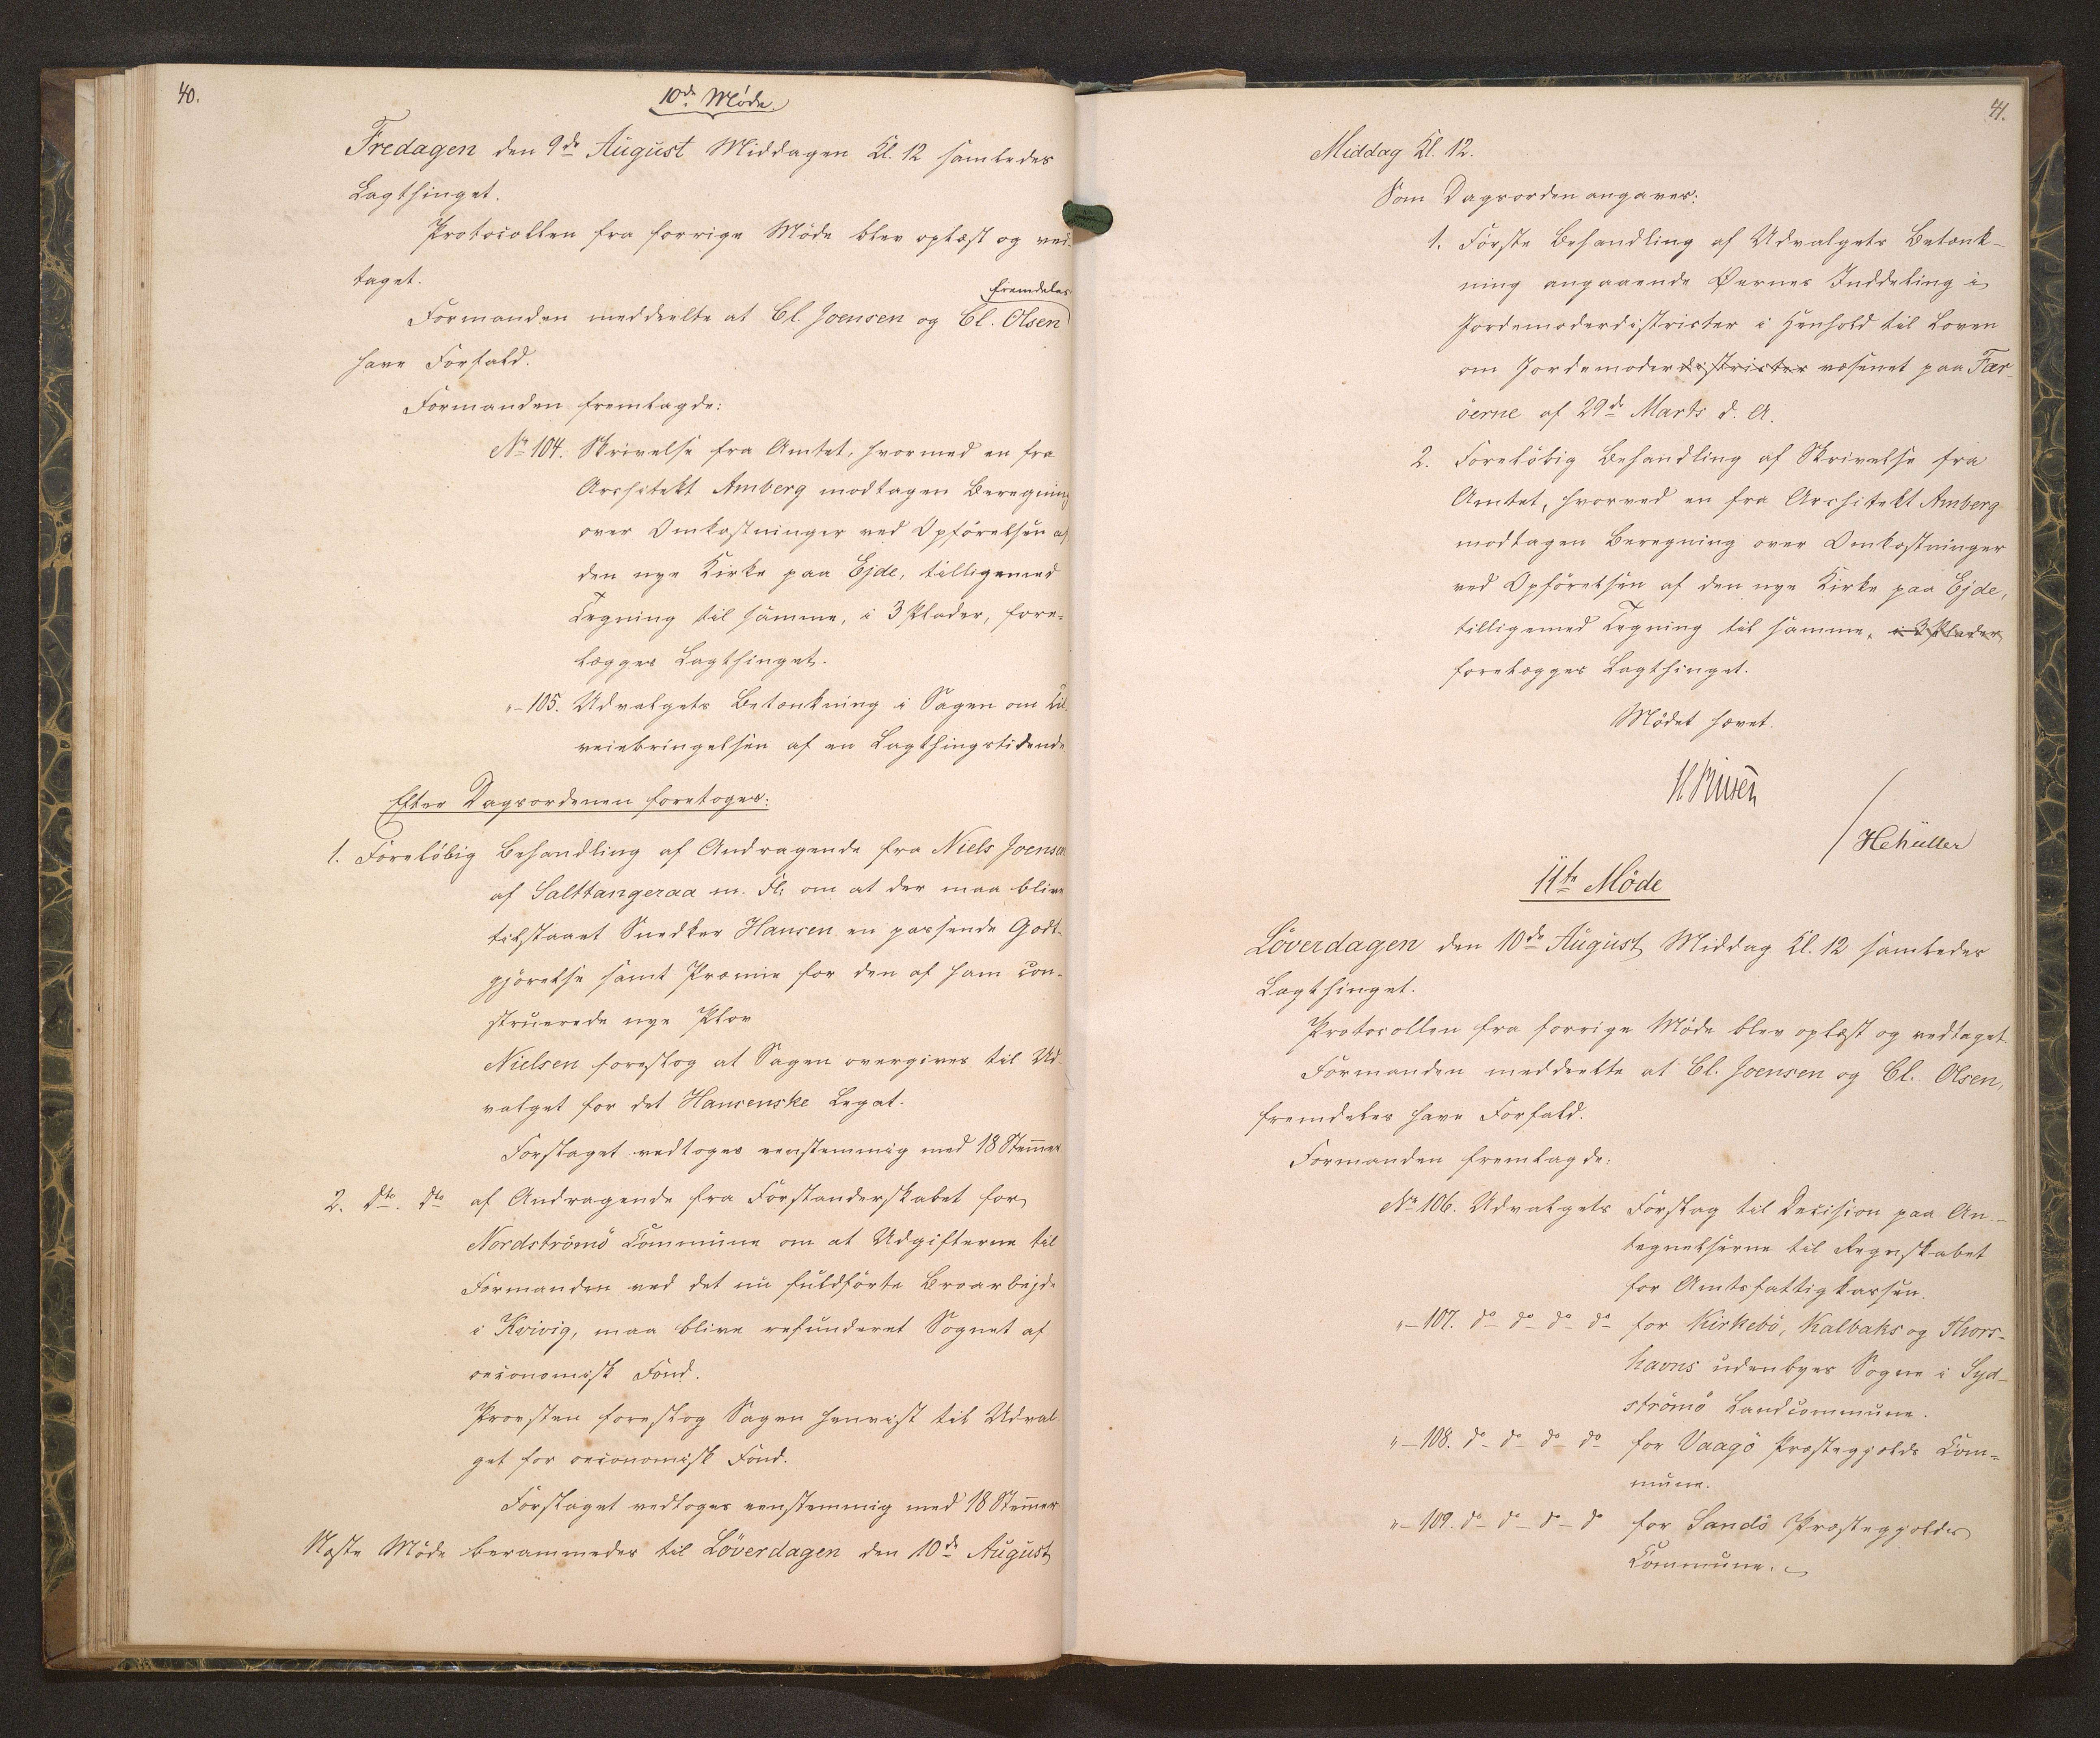 40.
10de Møde.
Fredagen den 9de August Middagen Kl. 12 samledes
Lagthinget.
Protocollen fra forrige Möde blev oplæst og ved-
taget.
fremdeles
Formanden meddeelte at Cl. Joensen og Cl. Olsen
have Forfald.
Formanden fremlagde:
No 104. Skrivelse fra Amtet, hvormed en fra
Architekt Amberg modtagen Beregning
over Omkostninger ved Opförelsen af
den nye Kirke paa Ejde, tilligemed
Tegning til samme, i 3 Plader, fore-
lægges Lagthinget.
"- 105. Udvalgets Betænkning i Sagen om Til-
veiebringelsen af en Lagthingstidende
Efter Dagsordenen foretoges:
1. Foreløbig Behandling af Andragende fra Niels Joensen
af Salttangeraa m. Fl: om at der maa blive
tilstaaet Snedker Hansen en passende Godt-
gjörelse samt Præmie for den af ham con-
struerede nye Plov
Nielsen foreslog at Sagen overgives til Ud-
valget for det Hansenske Legat.
Forslaget vedtoges eenstemmig med 18 Stemmer
2. Dto. Dto af Andragende fra Forstanderskabet for
Nordströmö Commune om at Udgifterne til
Formanden ved det nu fuldförte Broarbejde
i Kvivig, maa blive refunderet Sognet af
oeconomisk Fond.
Provsten foreslog Sagen henvist til Udval-
get for oeconomisk Fond.
Forslaget vedtoges eenstemmig med 18 Stemmer
Næste Möde berammedes til Löverdagen den 10de August
41.
Middag Kl. 12.
Som Dagsorden angaves:
1. Første Behandling af Udvalgets Betænk-
ning angaaende Øernes Inddeling i
Jordemoderdistricter i Henhold til Loven
om Jordemoderdistricter væsenet paa Fær-
öerne af 29de Marts d. A.
2. Foreløbig Behandling af Skrivelse fra
Amtet, hvorved en fra Architekt Amberg
modtagen Beregning over Omkostninger
ved Opförelsen af den nye Kirke paa Ejde,
tilligemed Tegning til samme, i 3 Plader
forelægges Lagthinget.
Mödet hævet.
/
11te Möde
Löverdagen den 10de August Middag Kl. 12 samledes
Lagthinget.
Protocollen fra forrige Möde blev oplæst og vedtaget.
Formanden meddeelte at Cl. Joensen og Cl. Olsen,
fremdeles have Forfald.
Formanden fremlagde:
No 106. Udvalgets Forslag til Decision paa An-
tegnelserne til Regnskabet
for Amtsfattigkassen.
"- 107. do do do do for Kirkebö, Kalbaks og Thors-
havns udenbyes Sogne i Syd-
strömö Landcommune.
"- 108. do do do do for Vaagö Præstegjælds Com-
mune.
"- 109. do do do do for Sandö Præstegjælds
Commune.